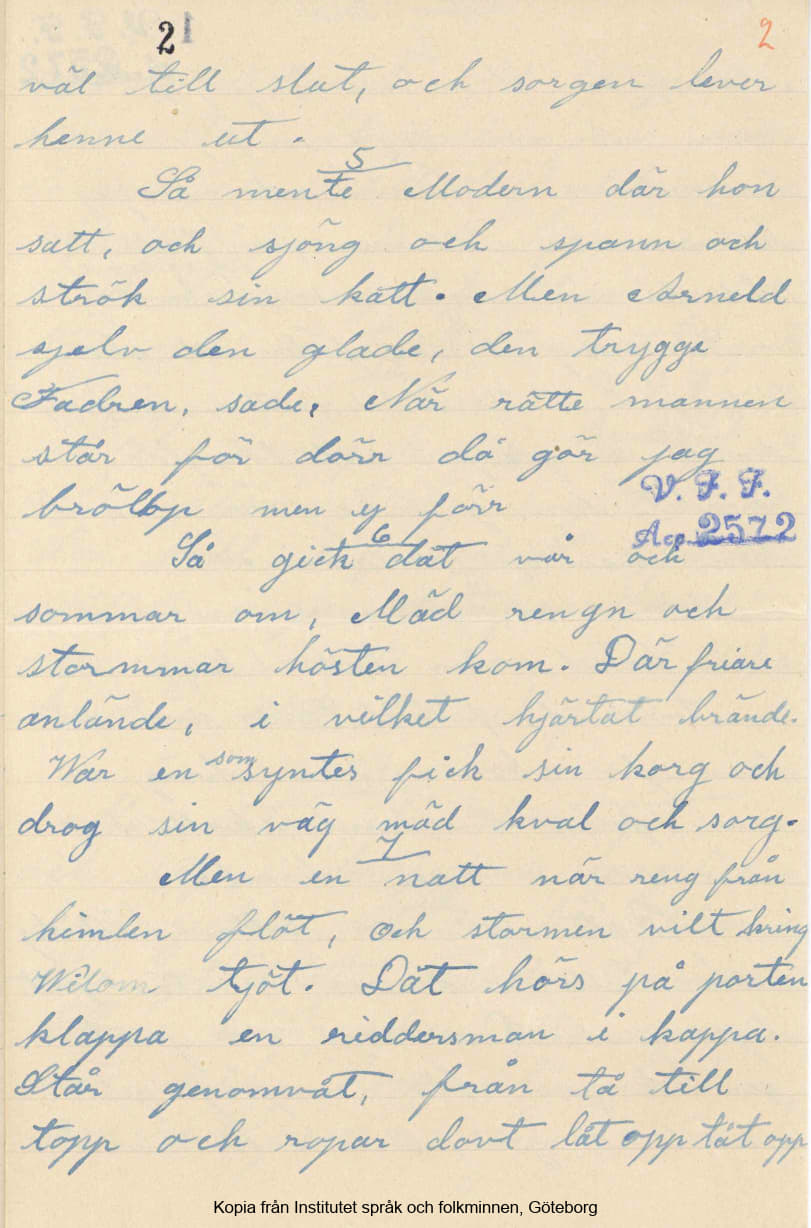 21
2
väl till slut, och sorgen lever
henne ut.
5
Så mente Modern där hon
satt, och sjöng och spann och
strök sin katt. Men Arneld
sjelv den glade, den trygge
Fadren, sade, När rätte mannen
står för dörr då gör jag
bröllop men ej förr
V. F. F.
Acc. 2572
6
Så gick dät vår och
sommar om, Mäd rengn och
stormmar hösten kom. Där friare
anlände, i vilket hjärtat brände.
War en som syntes fick sin korg och
drog sin väg mäd kval och sorg.
7
Men en natt när reng från
himlen flöt, och stormen vilt kring
Wilom tjöt. Dät hörs på porten
klappa en riddersman i kappa.
Står genomvåt, från tå till
topp och ropar dovt låt opp låt opp
Kopia från Institutet språk och folkminnen, Göteborg